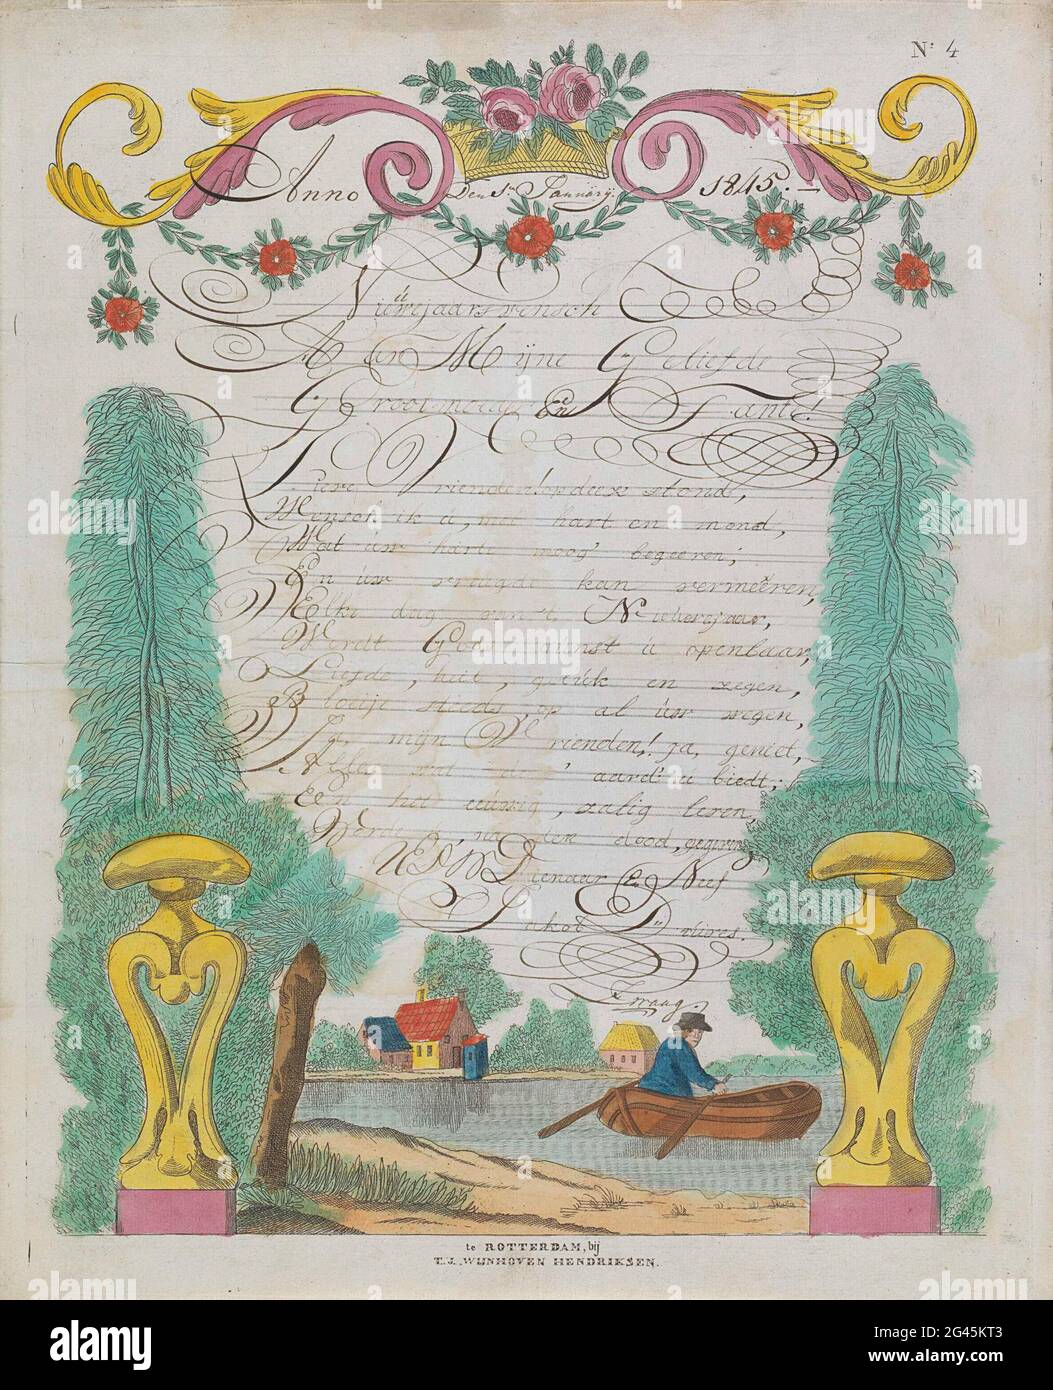 Nº 4
Anno Den 1n Januarij. 1845.
Nieuwejaarswensch
Aan Mijne Geliefde
Grootmoeder En Tante!
Lieve Vrienden! op deez stond,
Wensch ik ú, met hart en mond,
Wat úw harte moog' begeeren;
En úw vreugde kan vermeêren,
Elke dag van 't Nieuwejaar,
Wordt Gods gunst ú openbaar,
Liefde, heil, gelúk en zegen,
Bloeije steeds op al úw wegen,
Ja, mijn Vrienden! ja, geniet,
Alles wat deez' aard' ú biedt;
En het eúwig, zalig leven,
Worde ú na den dood, gegeven
UEDWD Dienaar & Neef
Jakob
Praag.
te ROTTERDAM, bij
T. J. WIJNHOVEN HENDRIKSEN.
alamy
Image ID: 2G45KT3
www.alamy.com